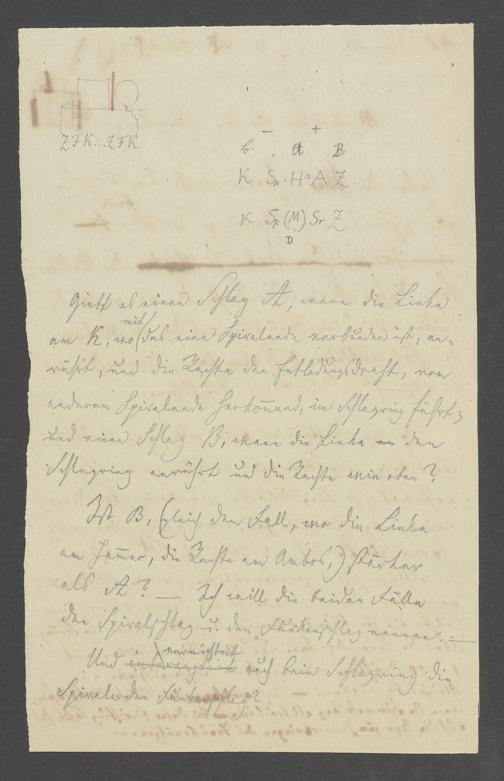 ZFK...ZFK
− +
b. A B
K Sp. Hm A Z
K Sp (M) Sr Z
D
Giebt es einen Schlag A, wenn die Linke
am K, wo mit das eine Spiralende verbunden ist, an-
rührt, und die Rechte den Entladungsdraht, vom
anderen Spiralende herkom̅end, im Schlagring führt;
und einen Schlag B, wenn die Linke den
Schlagring anrührt und die Rechte wie oben?
Ist B, (gleich dem Fall, wo die Linke
am Ham̅er, die Rechte am Ambos,) stärker
als A? — Ich will die beiden Fälle
den Spiralschlag u. den Funkenschlag nennen. —
Und vernichtet auch beim Schlagring die
Spirale den Funkenschlag?